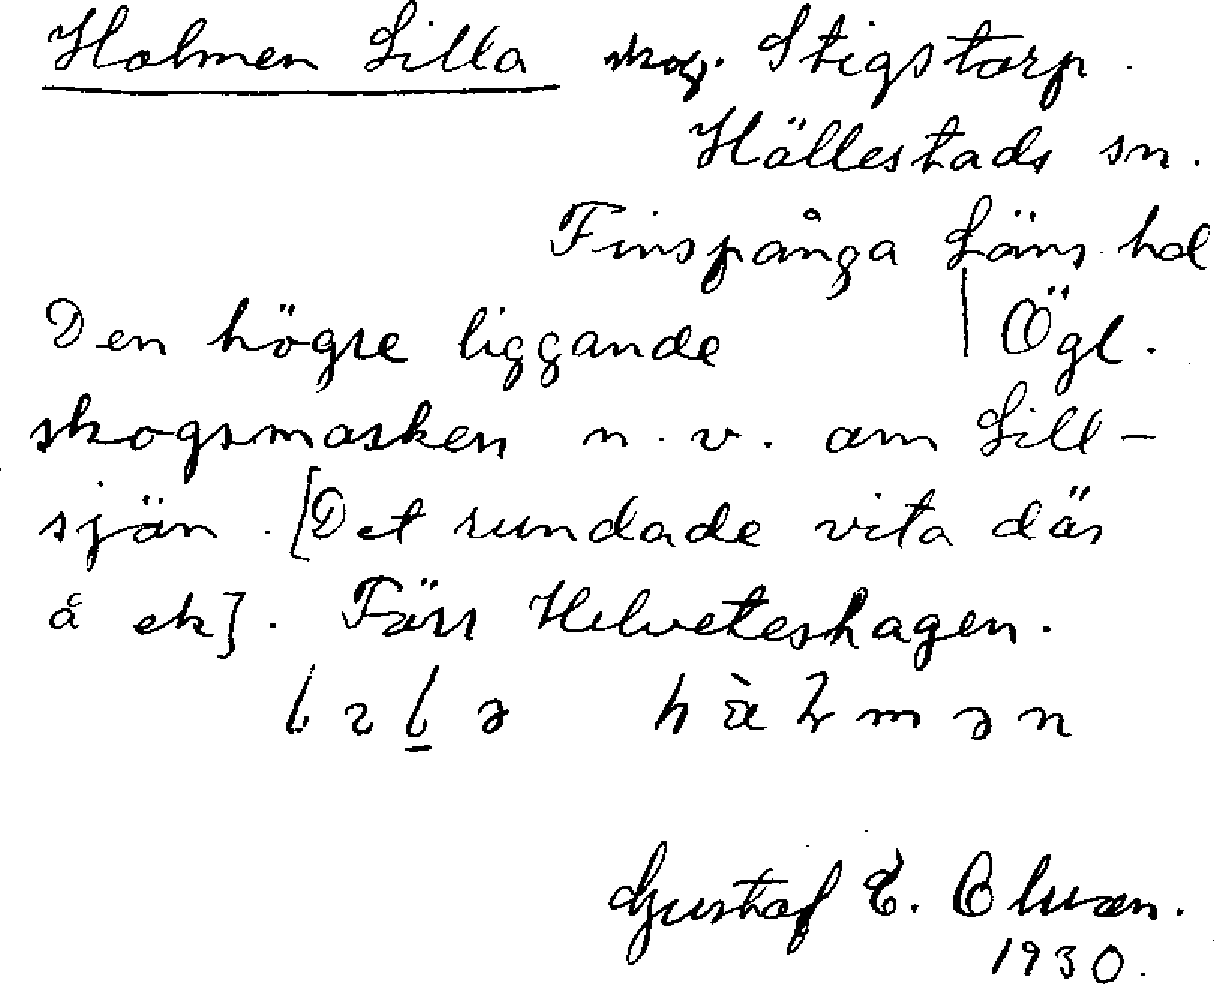 Holmen Lilla skog. Stigstorp.
Hällestads sn.
Finspånga Läns hd
Den högre liggande | Ögl.
skogsmarken n.v. om Lill-
sjön. [Det rundade vita där
å ek]. Förr Helveteshagen.
Gustaf E. Olsson.
1930.